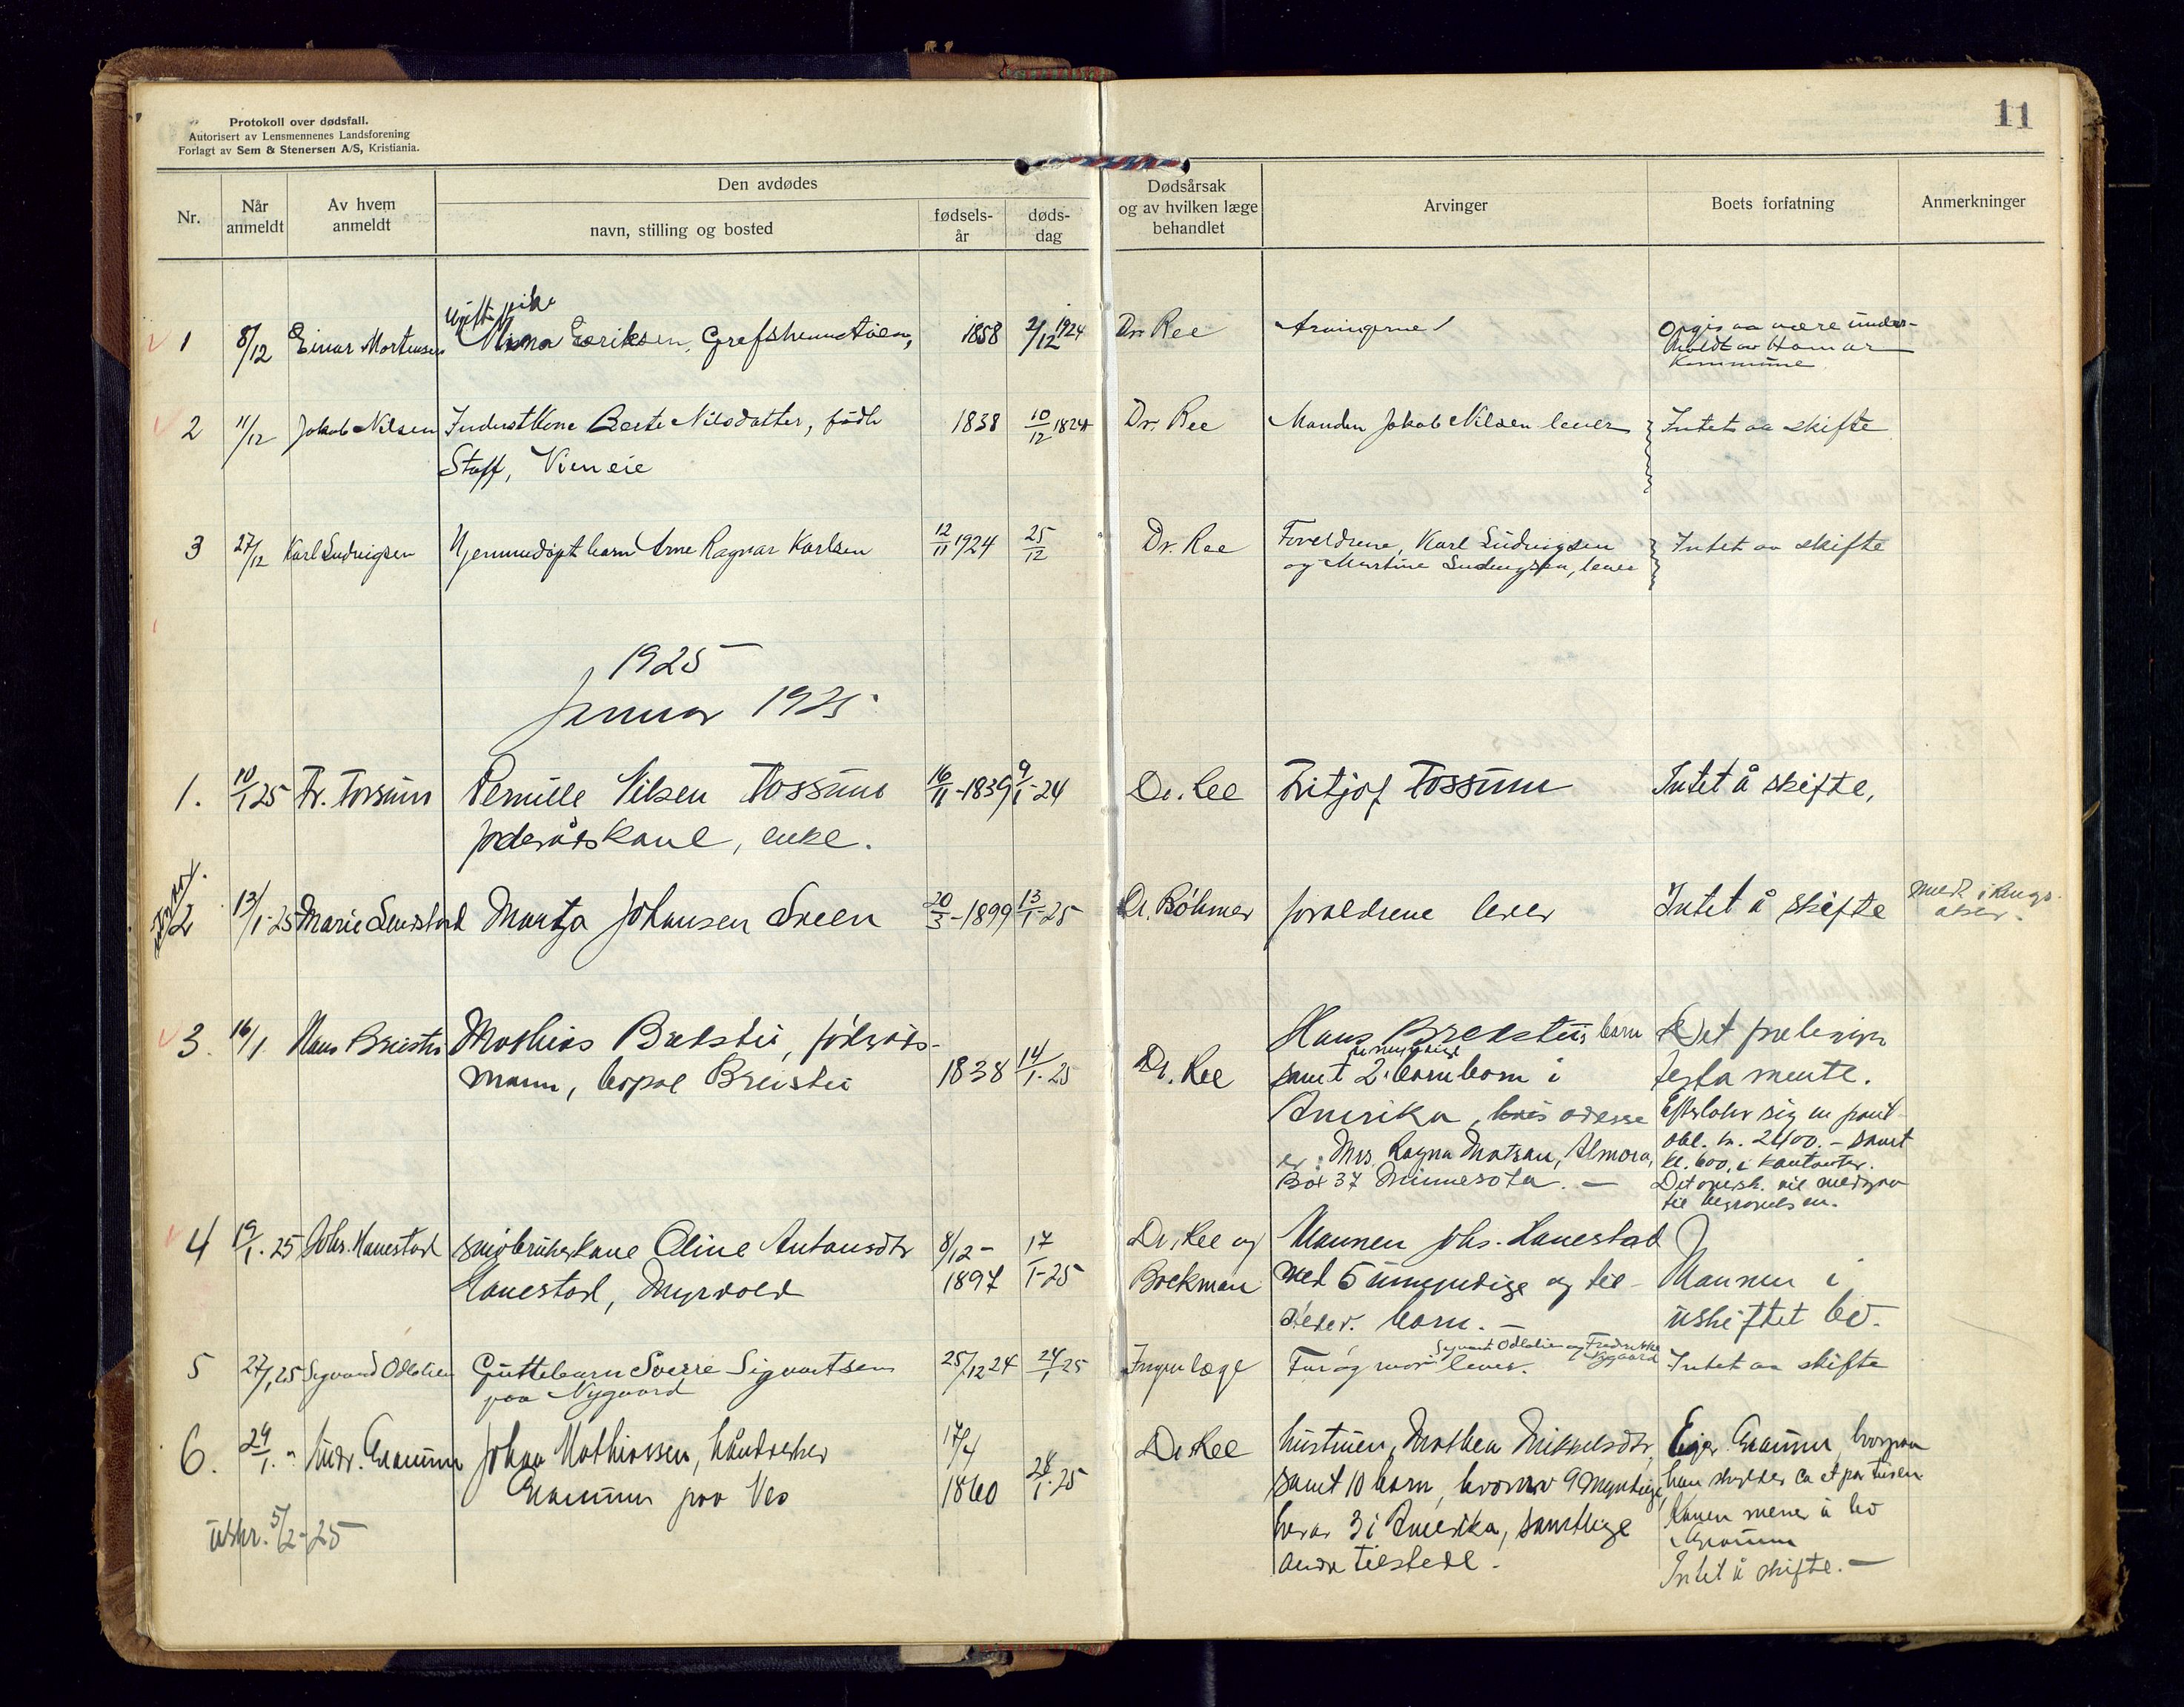 Protokoll over dødsfall.
Autorisert av Lensmennenes Landsforening
Forlagt av Sem & Stenersen A/S, Kristiania.
11
Nr.
Når anmeldt
Av hvem anmeldt
Den avdødes
navn, stilling og bosted
fødsels-år
døds-dag
Dødsårsak og av hvilken læge behandlet
Arvinger
Boets forfatning
Anmerkninger
Ugift pike
1 8/12 Einar Mortensen Eeriksen, 1858 2/12 1924 Dr. Ree Arvingerne Opgis aa være under-
holdt av Hamar
Kommune
2 11/12 Jakob Nilsen Inderstkone Berte Nilsdatter, født 1838 10/12 1824 Dr. Ree Manden Jakob Nilsen lever Intet aa skifte
Staff, Vieneie
3 27/12 Karl Ludvigsen Hjemmedøpt barn Arne Ragnar Karlsen 12/11 1924 25/12 Dr. Ree Foreldrene, Karl Ludvigsen Intet aa skifte
og Martine Ludvigsen, lever
1925
Januar 1925
1. 10/1 25 Fr. Fossum Pernille Nilsen Fossum 16/11-1839 9/1-24 Dr. Ree Fritjof Fossum Intet å skifte,
føderådskone, enke.
2 13/1-25 Marie Marta Johansen Sveen 20/3-1899 13/1-25 Dr. Böhmer foreldrene lever Intet å skifte
3. 16/1 Hans Breistu Mathias Brekstu, føderåds-
mann, Breistu 1838 14/1-25 Dr. Ree
Hans Brekstu, barn
samt 2 barnebarn i
Amerika, hvis adresse
er: Mrs Ragna Matsau, Almora,
Box 37 Minnesota. —
Det foreligger
testamente.
Efterlater sig en pant
obl. kr. 2400.- samt
kr. 600, i kontanter.
Det vil medgaa
til begravelsen.
4 19/1-25 Johs. Hanestad småbrukerkone Oline Antonsdtr 8/12- 17/1-25 Dr. Ree og Mannen Johs. Hanestad
Hanestad, Myrvold 1897 Bockman med 5 umyndige og til- Mannen i
stedev. barn. — uskiftet bo.
5 27/1 25 Sigvard Odlolien Guttebarn Sverre Sigvartsen 25/12 24 24/1 25 Ingen læge Far og mor lever. Intet aa skifte
Sigvart Odlolien og Fredrikke Nygaard
paa Nygaard
6. 29/1 " Andr. Granum Johan Mathiassen, håndverker 17/4 Dr. Ree hustruen, Mathea Mikkelsdtr, Eier Granum, hvorpaa
Granum paa Veo 1860 28/1-25 samt 10 barn, hvorav 9 myndige, han skylder ca et par tusen
herav 3 i Amerika, samtlige Konen mener å bo
andre tilstede. Granum
Intet å skifte. —
utskr. 5/2-25